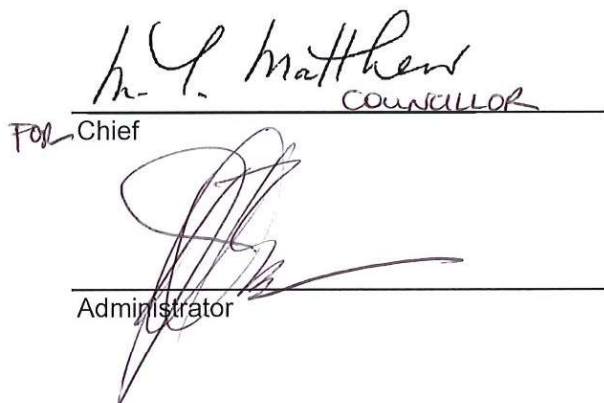 M. Y. Matthew
COUNCILLOR
FOR Chief
Administrator